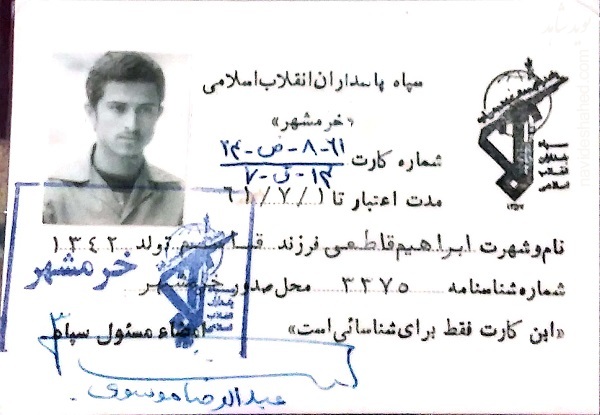 سپاه پاسداران انقلاب اسلامی
«خرمشهر»
شماره کارت ۶۱-۸-ض-۲۴
۱۳-ق-۷
مدت اعتبار تا ۶۱/۷/۱
نام و شهرت ابراهیم قاطعی فرزند قاسم تولد ۱۳۴۲
شماره شناسنامه ۳۳۷۵ محل صدور خرمشهر
«این کارت فقط برای شناسائی است» امضاء مسئول سپاه
خرمشهر
عبدالرضا موسوی
navideshahed.com